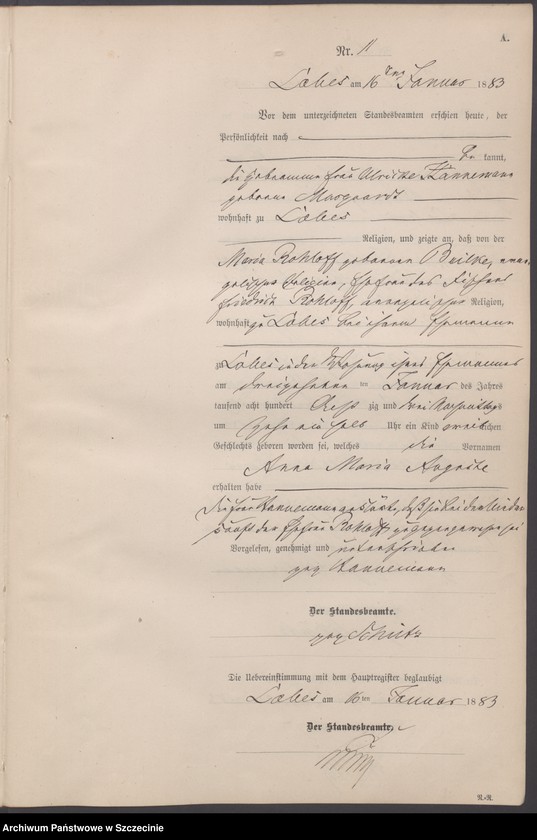 A.
Nr. 11
Labes am 16ten Januar 1883
Vor dem unterzeichneten Standesbeamten erschien heute, der
Persönlichkeit nach
be kannt,
die Hebeamme Frau Ulricke Hannemann
geborene
wohnhaft zu Labes
Religion, und zeigte an, daß von der
Maria Rohloff geborenen Beilke, evan-
gelischer Religion, Ehefrau des Fischers
Friedrich Rohloff, evangelischer Religion,
wohnhaft zu Labes bei ihrem Ehemanne
zu Labes in der Wohnung ihres Ehemannes
am dreizehnten ten Januar des Jahres
tausend acht hundert acht zig und drei Vormittags
um zehn ein halb Uhr ein Kind weiblichen
Geschlechts geboren worden sei, welches die Vornamen
Anna Maria Auguste
erhalten habe
Die Frau Hannemann erklärte, daß sie bei der Nieder-
kunft der Ehefrau Rohloff zugegen gewesen sei
Vorgelesen, genehmigt und unterschrieben
gez Hannemann
Der Standesbeamte.
gez Schütz
Die Uebereinstimmung mit dem Hauptregister beglaubigt
Labes am 16ten Januar 1883
Der Standesbeamte.
N.-R.
Archiwum Państwowe w Szczecinie